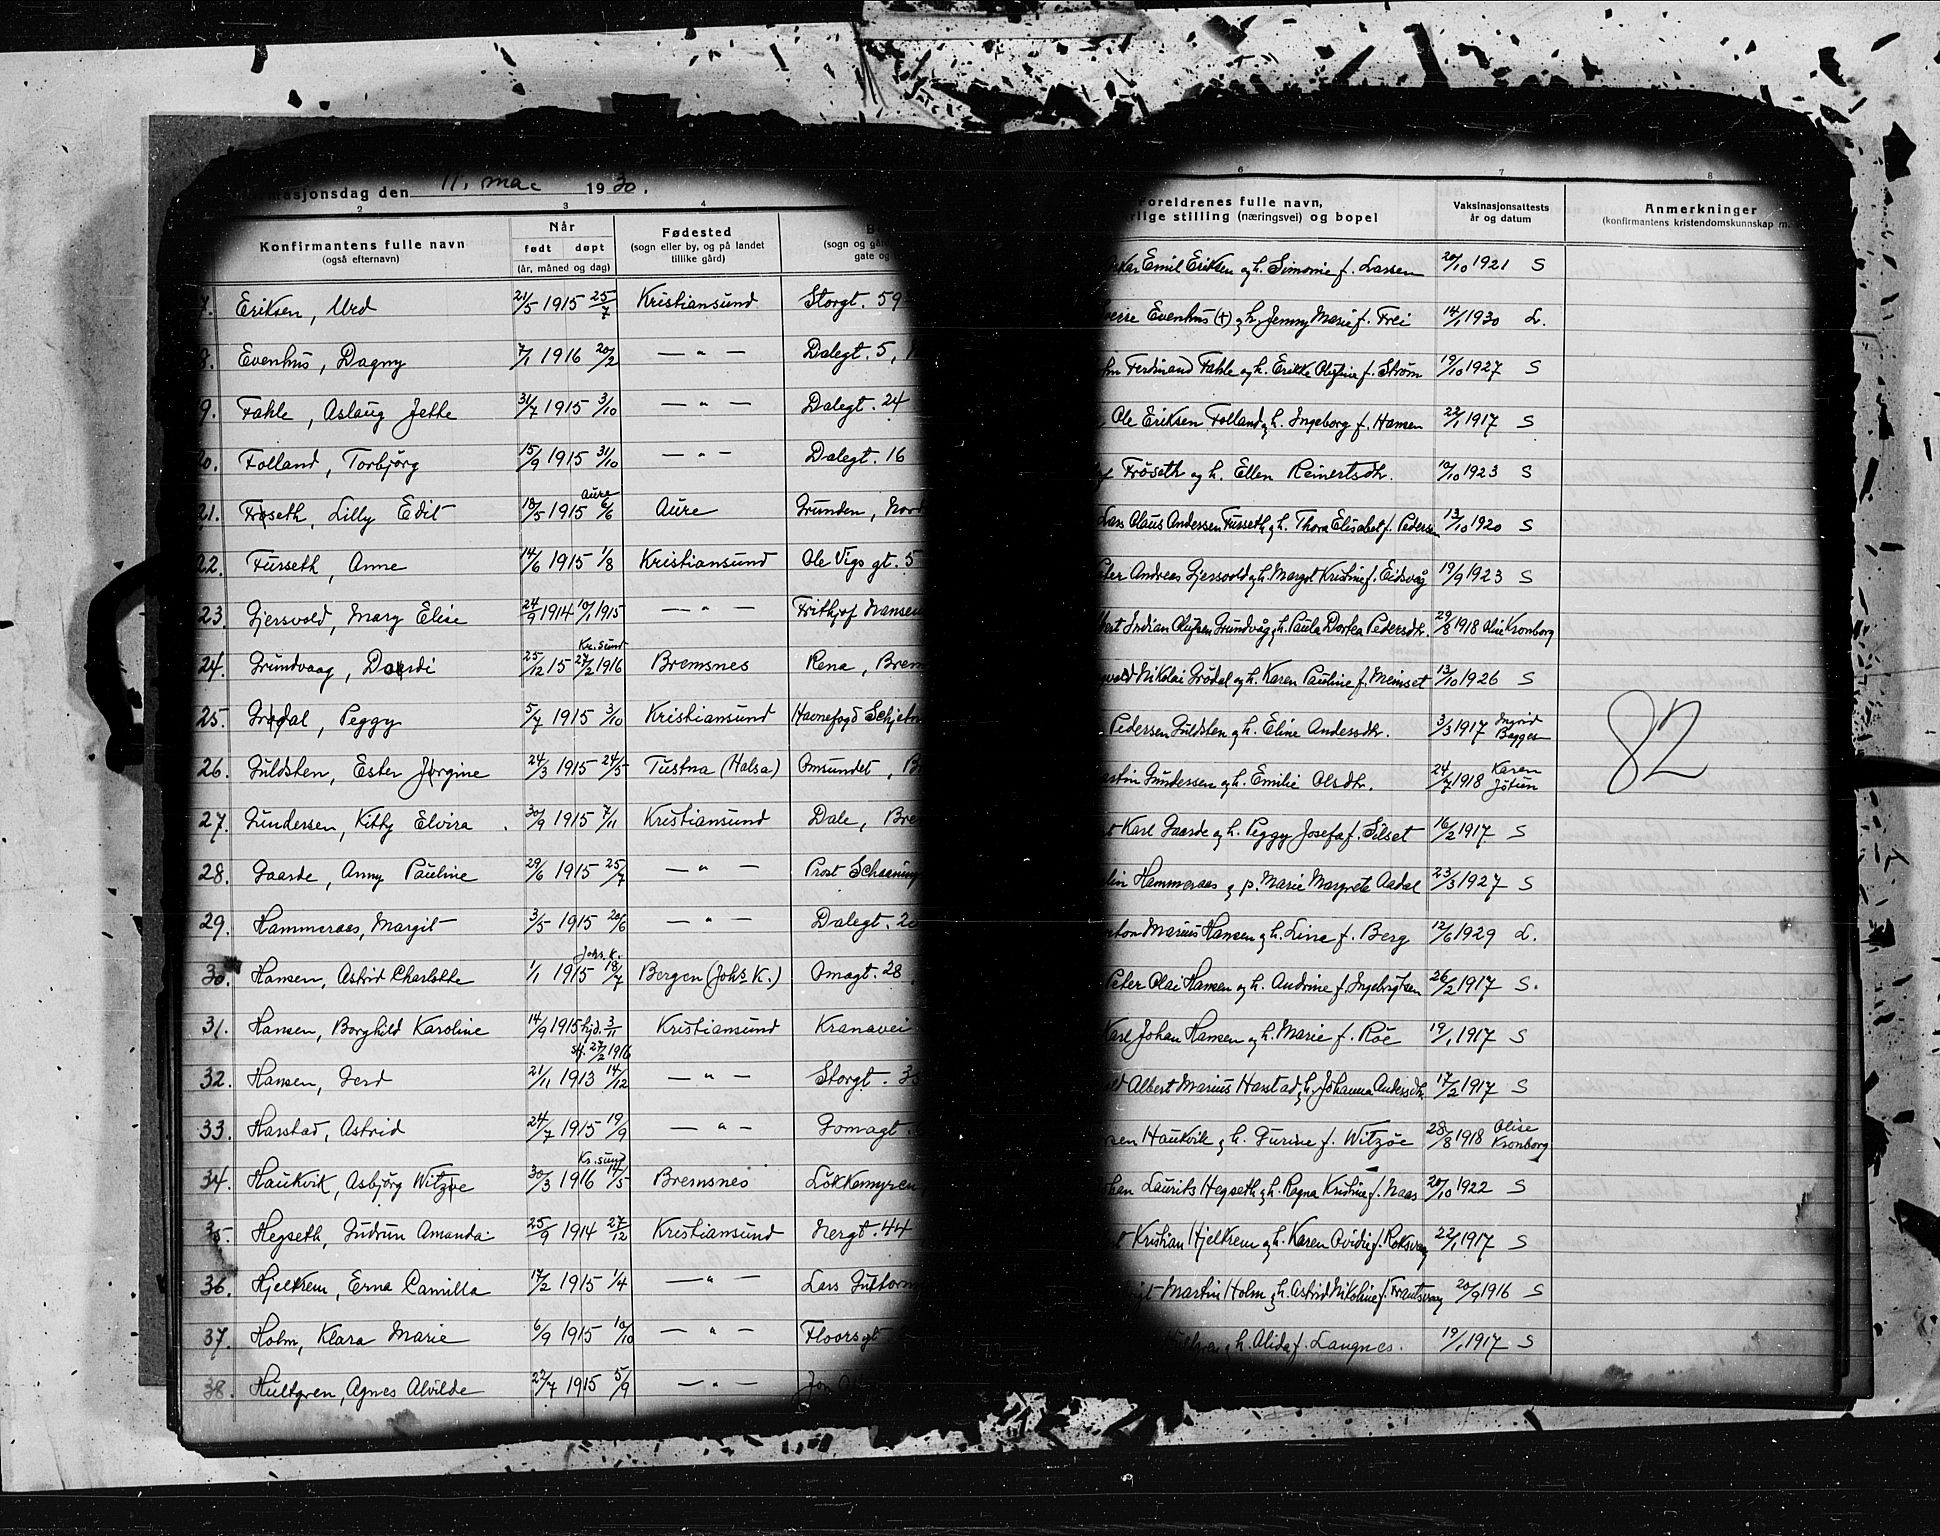 masjonsdag den 11. mai 1930.
2 3 4
Konfirmantens fulle navn
(også efternavn)
Når
født døpt
(år, måned og dag)
Fødested
(sogn eller by, og på landet
tillike gård)
(sogn og går
gate og
7. Eriksen, Urd 21/5 1915 25/7 Kristiansund Storgt. 59
8. Evenhus, Dagny 7/1 1916 20/2 — " — Dalegt. 5,
9. Fahle, Aslaug Jette 31/7 1915 3/10 — " — Dalegt. 24
20. Folland, Torbjørg 15/9 1915 31/10 — " — Dalegt. 16
21. Frøseth, Lilly Edit 18/5 1915 Aure 6/6 Aure Grunden, Nord
22. Fusseth, Anne 14/6 1915 1/8 Kristiansund Ole Vigs gt. 5
23. Gjersvold, Mary Elise 24/9 1914 10/1 1915 — " — Frithjof Nansen
24. Grundvaag, Dordi 25/12 15 Kr.sund 27/2 1916 Bremsnes Rena, Brem
25. Grødal, Peggy 5/7 1915 3/10 Kristiansund Havnefogd Schjelv
26. Guldsten, Ester Jørgine 24/3 1915 24/5 Tustna (Halsa) Omsundet, B
27. Gundersen, Kitty Elvira 30/9 1915 7/11 Kristiansund Dale, Bre
28. Gaarde, Anny Pauline 29/6 1915 25/7 — " — Prost Schaanning
29. Hammeraas, Margit 3/5 1915 20/6 — " — Dalegt. 20
30. Hansen, Astrid Charlotte 1/1 1915 Johs. K. 18/7 Bergen (Johs K.) Omagt. 28
31. Hansen, Borghild Karoline 14/9 1915 hjd. 3/11 st. 27/2 1916 Kristiansund Kranavei
32. Hansen, Gerd 21/11 1913 14/12 — " — Storgt. 35
33. Harstad, Astrid 24/7 1915 19/9 — " — Gomagt.
34. Haukvik, Asbjørg Witzøe 30/3 1916 Kr.sund 14/5 Bremsnes Løkkemyren,
35. Hegseth, Gudrun Amanda 25/9 1914 27/12 Kristiansund Nergt. 44
36. Hjelkrem, Erna Camilla 17/2 1915 1/4 — " — Lars Guttorm
37. Holm, Klara Marie 6/9 1915 10/10 — " — Floorsgt
38. Hultgren, Agnes Alvilde 22/7 1915 5/9 — " — Jon
6 7 8
Foreldrenes fulle navn,
rlige stilling (næringsvei) og bopel
Vaksinasjonsattests
år og datum
Anmerkninger
(konfirmantens kristendomskunnskap m.
Emil Eriksen og h. Simonie f. Lassen 20/10 1921 S
verre Evenhus (+) og h. Jenny Marie f. Frei 14/1 1930 L.
Ferdinand Fahle og h. Erikke Olufine f. Strøm 19/10 1927 S
Ole Eriksen Folland og h. Ingeborg f. Hansen 22/1 1917 S
Frøseth og h. Ellen Reinertsdtr. 10/10 1923 S
Lars Olaus Andersen Fusseth og h. Thora Elisabet f. Pedersen 13/10 1920 S
Peter Andreas Gjersvold og h. Margot Kristine f. Eidsvåg 19/9 1923 S
Indian Olufsen Grundvåg og h. Paula Dortea Pedersdtr. 29/8 1918 Olise Kronborg
Nikolai Grødal og h. Karen Pauline f. Meinset 13/10 1926 S
Pedersen Guldsten og h. Eline Andersdtr. 3/3 1917 Ingrid Bagges
artin Gundersen og h. Emilie Olsdtr. 24/7 1918 Karen Jøtun
Karl Gaarde og h. Peggy Josefa f. Silset 16/2 1917 S
Hammeraas og p. Marie Margrete Aadal 23/3 1927 S
nton Marius Hansen og h. Line f. Berg 12/6 1929 L.
Peter Olai Hansen og h. Andrine f. Ingebrigtsen 26/2 1917 S.
Karl Johan Hansen og h. Marie f. Røe 19/1 1917 S
Albert Marius Harstad og h. Johanna Andersdtr. 17/2 1917 S
Haukvik og h. Gurine f. Witzøe 28/8 1918 Olise Kronborg
Laurits Hegseth og h. Ragna Kristine f. Naas 20/10 1922 S
Kristian Hjelkrem og h. Karen Ovidie f. Roksvaag 22/1 1917 S
Martin Holm og h. Astrid Nikoline f. Frantsvaag 20/9 1916 S
og h. Alida f. Langnes. 19/1 1917 S
82